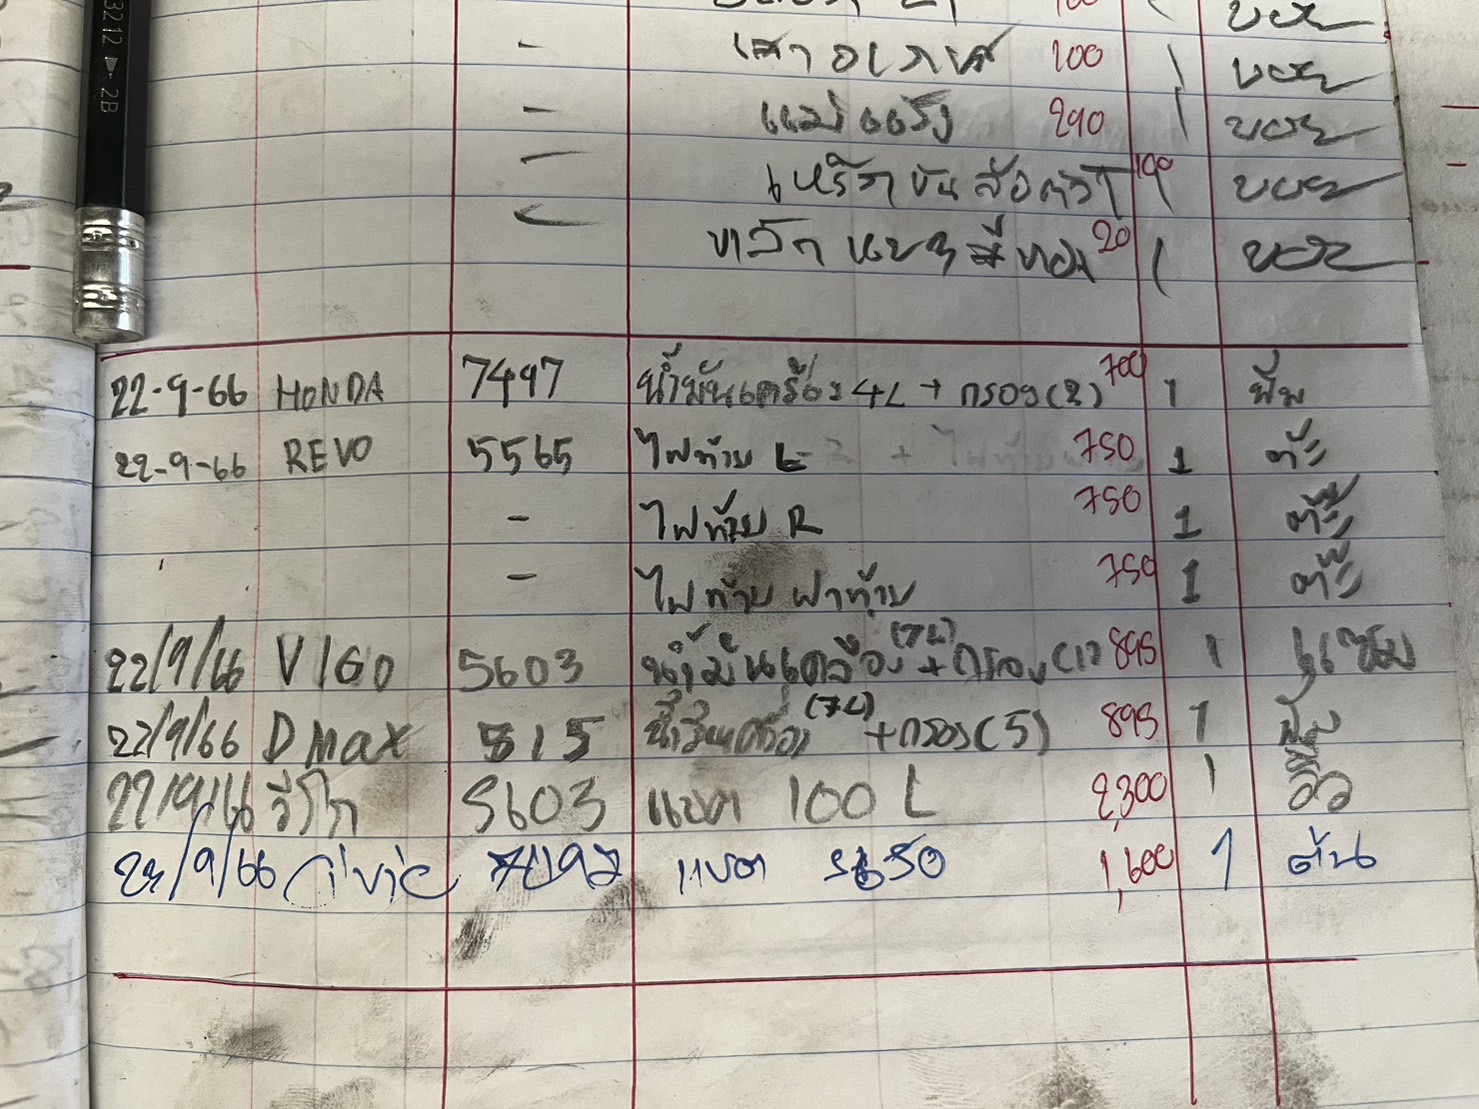 3212 ▶ 2B
- เสาอากาศ 200 1 บอย
- แม่แรง 290 1 บอย
- 100 1 บอย
20 1 บอย
22-9-66 HONDA 7497 น้ำมันเครื่อง 4L + กรอง(2) 700 1 พีม
22-9-66 REVO 5565 ไฟท้าย L 750 1 ต๊ะ
- ไฟท้าย R 750 1 ต๊ะ
- ไฟท้าย ฝาท้าย 750 1 ต๊ะ
22/9/66 VIGO 5603 น้ำมันเครื่อง (7L) + กรอง (1) 895 1
22/9/66 D MaX 515 น้ำมันเครื่อง (7L) + กรอง (5) 895 1
22/9/66 วีโก้ 5603 แบต 100 L 2,300 1 อิ๋ว
/9/66 แบต 1,600 1 ต้น